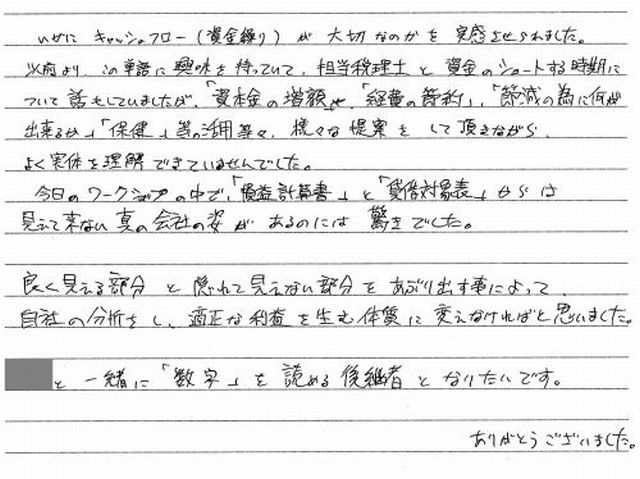 いかに キャッシュフロー（資金繰り）が 大切なのかを 実感させられました。
以前より、この単語に興味を持っていて、担当税理士と資金のショートする時期に
ついて話もしていましたが、「資本金の増額や、「経費の節約」、「節減の為に何が
出来るか」「保健」等の活用等々、様々な提案をして頂きながら、
よく実体を理解できていませんでした。
今日のワークショップの中で、「損益計算書」と「貸借対照表」からは
見えて来ない真の会社の姿が あるのには 驚きでした。
良く見える部分と隠れて見えない部分をあぶり出す事によって、
自社の分析をし、適正な利益を生む体質に変えなければと思いました。
と一緒に「数字」を読める後継者となりたいです。
ありがとうございました。